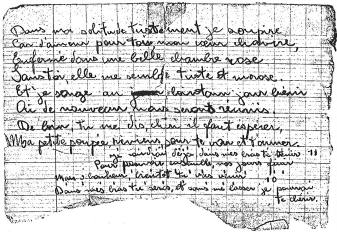 Dans ma solitude tristement je soupire
Car d'amour pour toi, mon cœur chavire,
Enfermé dans une belle chambre rose
Sans toi, elle me semble triste et morose.
Et je songe au lointain jour béni
Où de nouveau nous serons réunis
De loin, tu me dis, chéri il faut espérer,
Ma petite poupée, reviens, pour te voir et t'aimer.
Je déjà dans mes bras te tenir
Pour pouvoir ensemble nos jours finir
Mais, ô bonheur, bientôt tu vas venir
Dans mes bras tu seras, et sans me lasser je pourrai
te chérir.